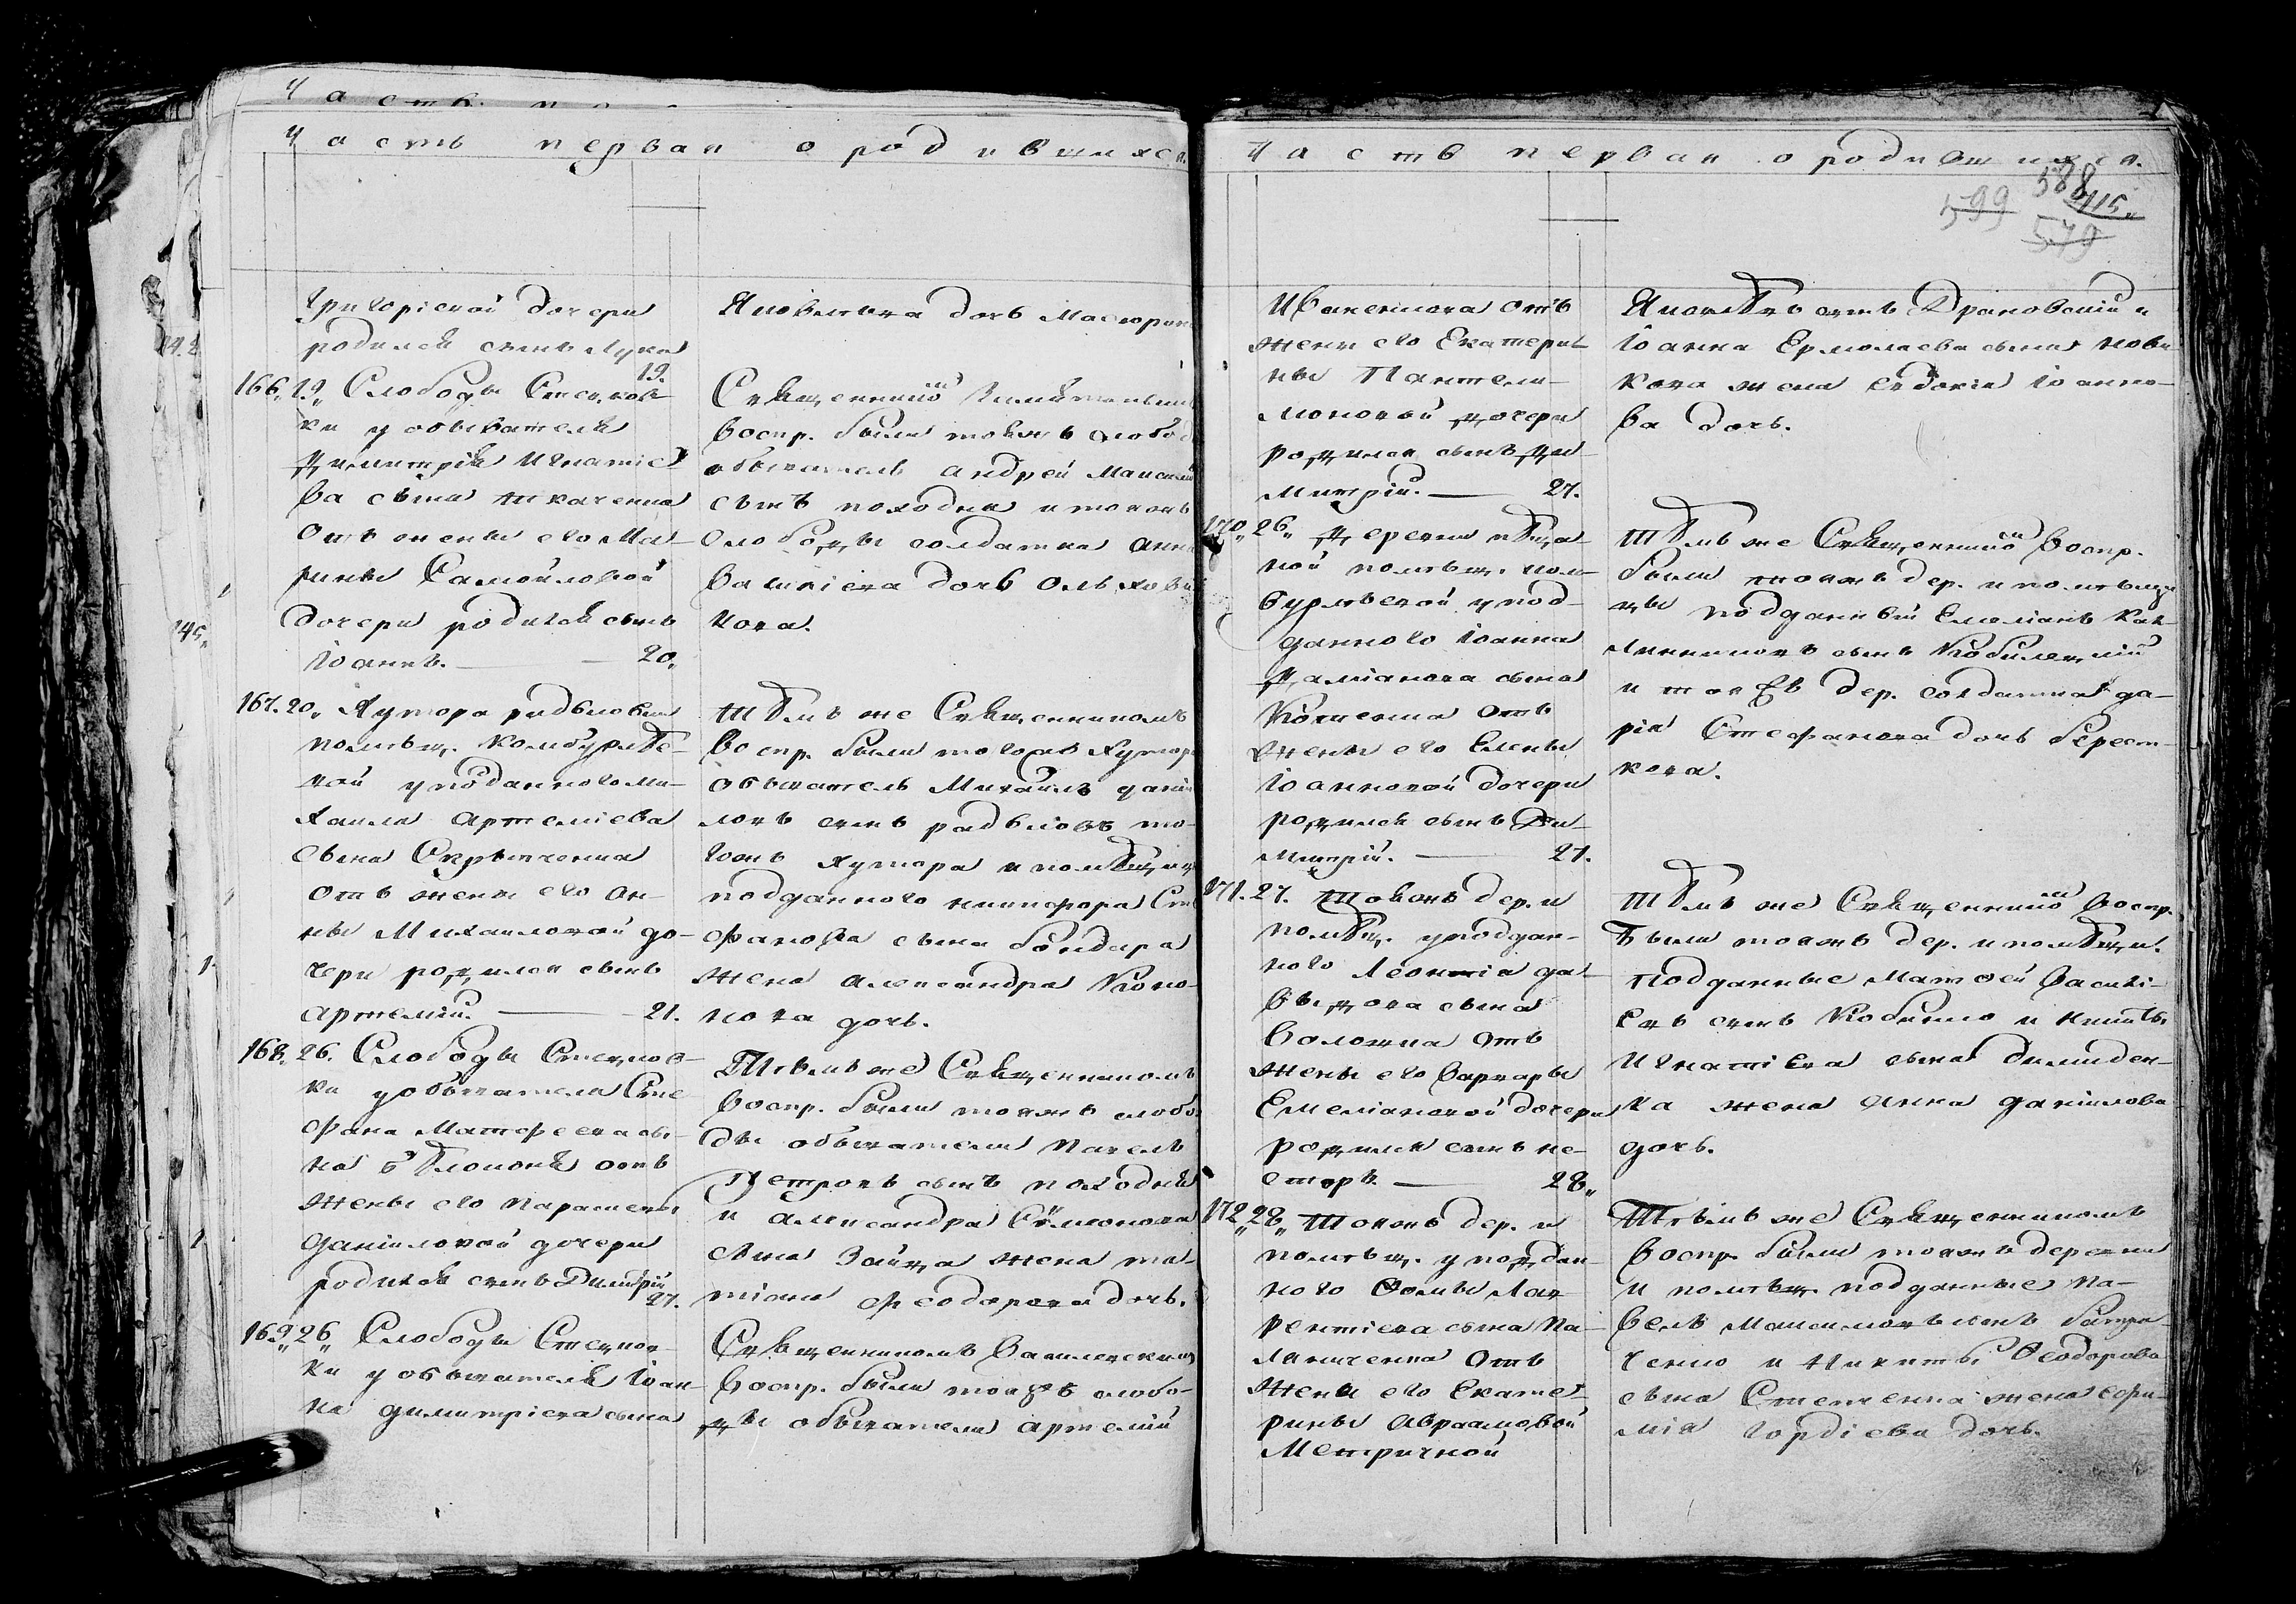 Часть первая о родившихся.
Григоріевой дочери
родился сынъ Лука
19.
166. 19. Слободы Стецков-
ки у обывателя
Димитрія Игнатіе-
ва сына Ткаченка
отъ жены его Ма-
рины Самойловой
дочери родился сынъ
Іоаннъ. — 20.
167. 20. Хутора
помѣщ. Комбурлѣе-
вой у подданного Ми-
хаила Артеміева
сына Скрыпченка
отъ жены его Ан-
ны Михаиловой до-
чери родился сынъ
Артемій. — 21.
168. 26. Слободы Стецков-
ки у обывателя Сте-
фана Матфеева сы-
на отъ
жены его Параскевы
Даніиловой дочери
родился сынъ Димитрій
27.
169. 26. Слободы Стецков-
ки у обывателя Іоан-
на Димитріева сына
Яковлева дочь
Священникомъ
воспр. были тояжъ слобод
обыватель Андрей Максимов
сынъ Походня и тояжъ
слободы солдатка Анна
дочь Ольхови
кова.
Тѣмъ же Священникомъ
воспр. были тогожъ хутора
обыватель Михаилъ Дании
ловъ сынъ то-
гожъ хутора и помѣщиц
подданного Никифора Сте
фанова сына Бондара
жена Александра Коно-
нова дочь.
Тѣмъ же Священникомъ
воспр. были тояжъ слобо
ды обыватели Павелъ
Петровъ сынъ Походня
и Александра Симеонова
сына Зайца жена Та-
тіана Феодорова дочь.
Священникомъ Василевскимъ
воспр. были тояжъ слобо-
ды обыватели Артемій
Часть первая о родившихся.
588
599 415.
579
Иваненкова отъ
жены его Екатери-
ны Пантели-
моновой дочери
родился сынъ Ди-
митрій. — 27.
170. 26. Деревни
ной помѣщ. Ком-
бурлѣевой у под-
данного Іоанна
Даміанова сына
отъ
жены его Елены
Іоанновой дочери
родился сынъ Ди-
митрій. — 27.
171. 27. Тояжъ дер. и
помѣщ. у поддан-
ного Леонтія Да-
выдова сына
отъ
жены его Варвары
Емеліановой дочери
родился сынъ Не-
сторъ. — 28.
172. 28. Тояжъ дер. и
помѣщ. у поддан-
ного Ѳомы Лав-
рентіева сына Па-
ланченка отъ
жены его Екате-
рины Авраамовой
Метричной
Яковлевъ сынъ Драновскій и
Іоанна Ермолаева сына Нови
кова жена Евдокія Іоанно-
ва дочь.
Тѣмъ же Священникомъ воспр.
были тояжъ дер. и помѣщи
цы подданный Емеліанъ Кал-
линиковъ сынъ
и тоеже дер. солдатка Да-
рія Стефанова дочь Берест-
кова.
Тѣмъ же Священникомъ воспр.
были тояжъ дер. и помѣщи.
подданные Матфей Василі-
евъ сынъ Кобилко и Никиты
Игнатіева сына Дилиден-
ка жена Анна Даніилова
дочь.
Тѣмъ же Священникомъ
воспр. были тояжъ деревни
и помѣщ. подданные Па-
велъ Максимовъ сынъ
ченко и Никиты Ѳеодорова
сына Степченка жена Ефи-
мія Гордіева дочь.